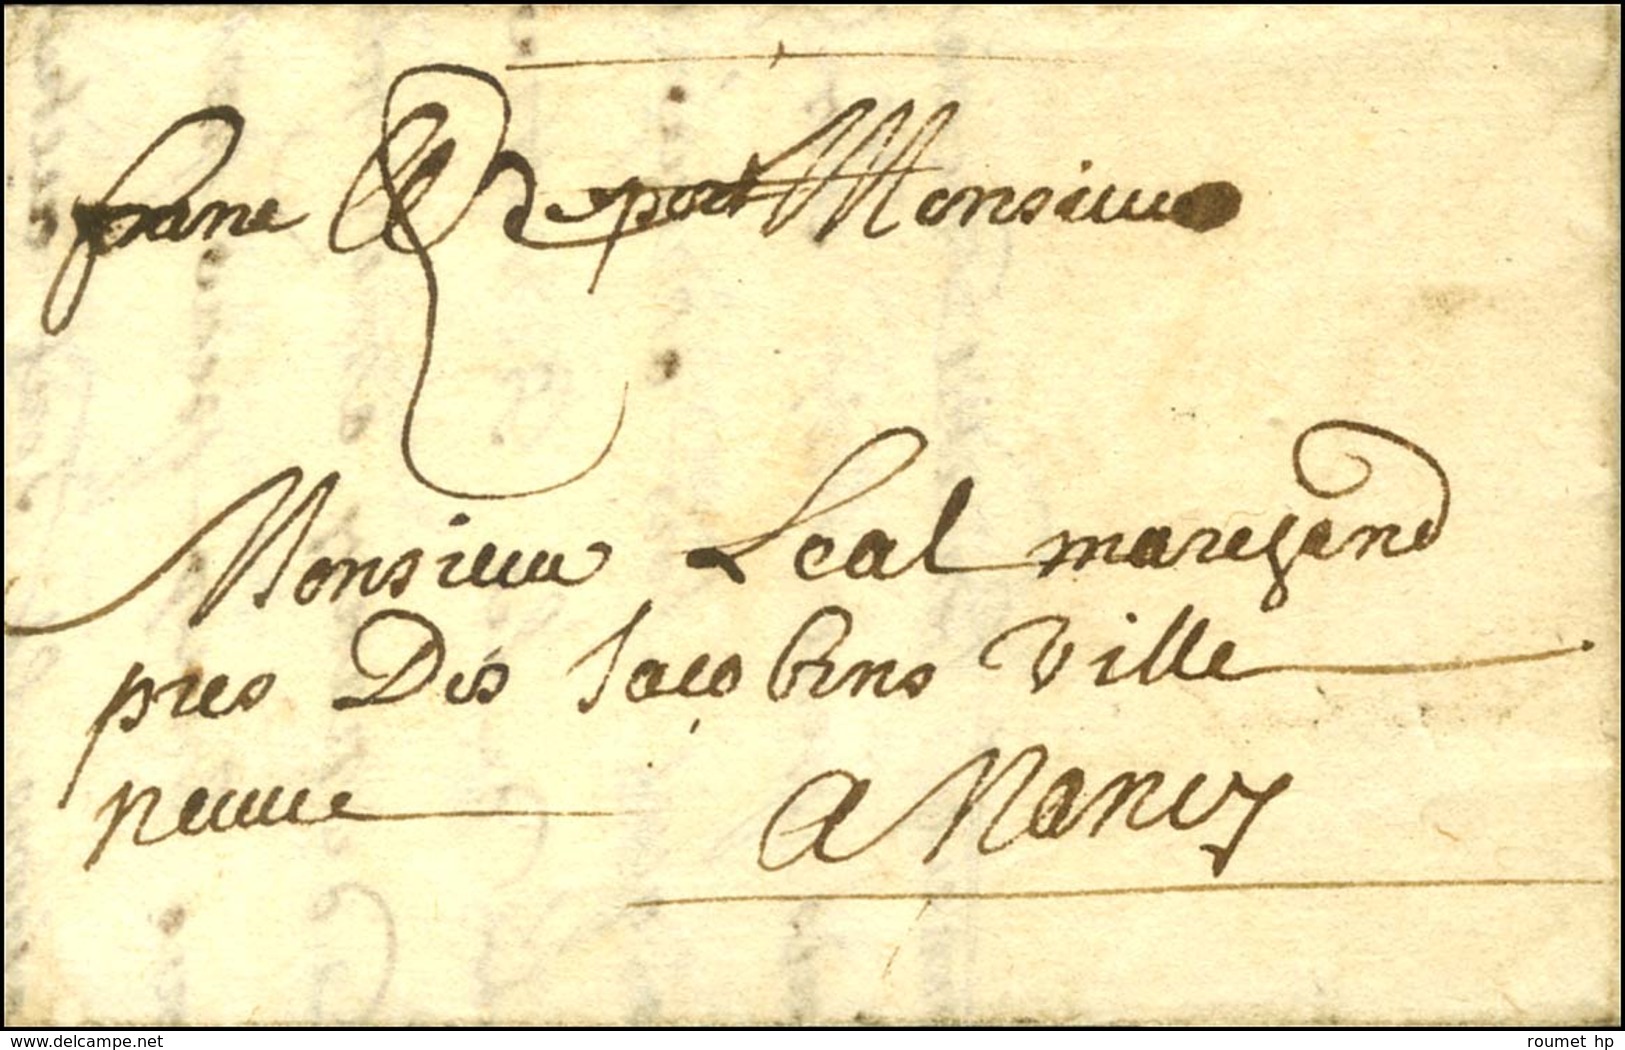 franc de port Monsieur
Monsieur Leal marchand
pres Des Jacobins Ville
neuve
a Nancy
www.delcampe.net
roumet_hp